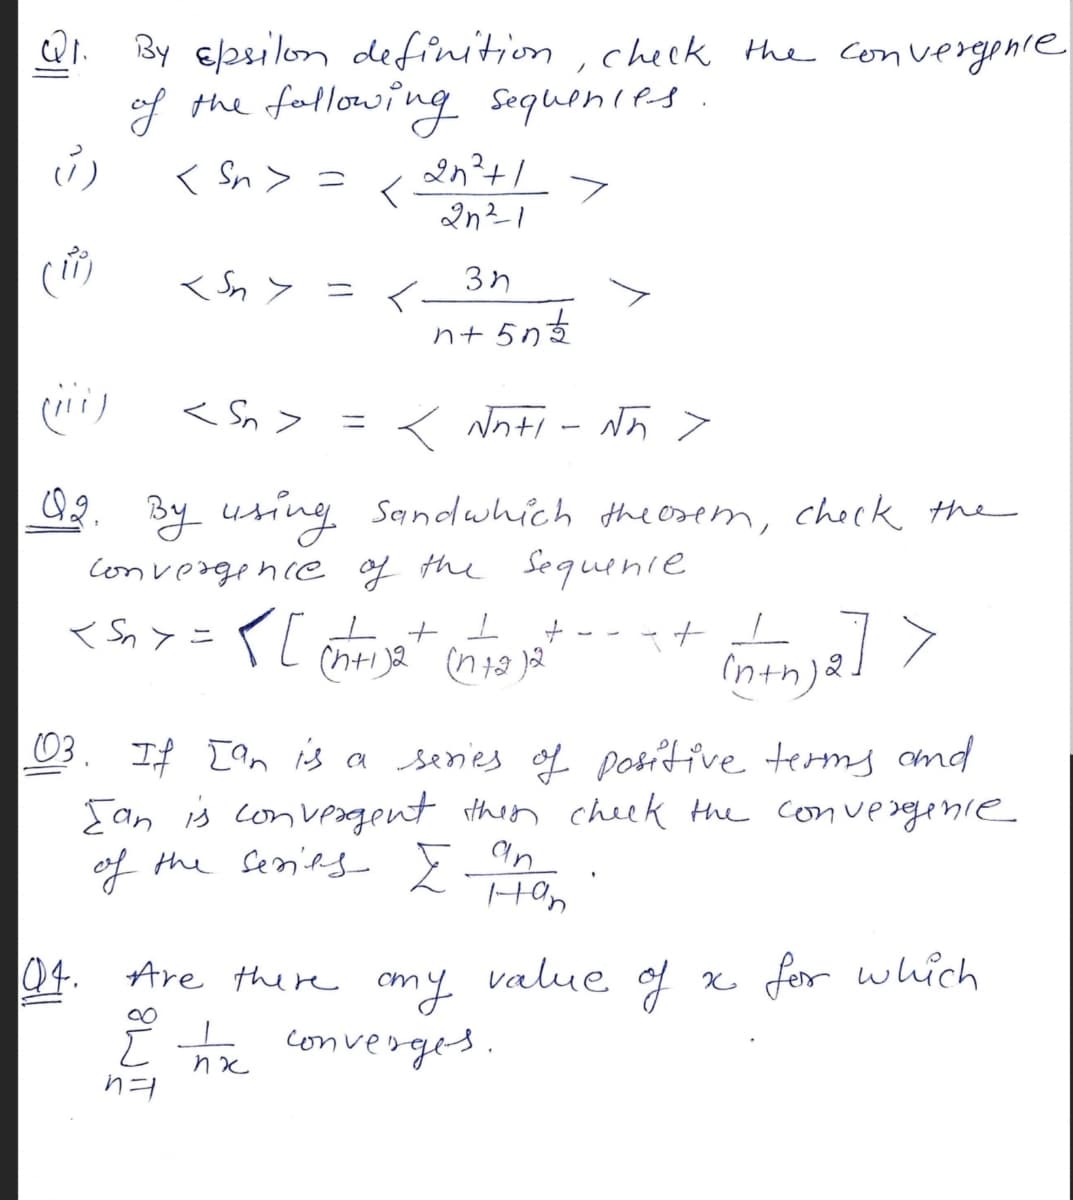 Q1. By Epsilon definition, check the convergence
of the following sequences.
(i) < Sn > = < 2n²+1 / 2n²-1 >
(ii) < Sn > = < 3n / n+5n^1/2 >
(iii) < Sn > = < √n+1 - √n >
Q2. By using Sandwhich theorem, check the
convergence of the sequence
< Sn > = < [ 1/(n+1)2 + 1/(n+2)2 + ---- + 1/(n+n)2 ] >
Q3. If Σan is a series of positive terms and
Σan is convergent then check the convergence
of the series Σ an/1+an .
Q4. Are there any value of x for which
∞ Σ n=1 1/nx converges.